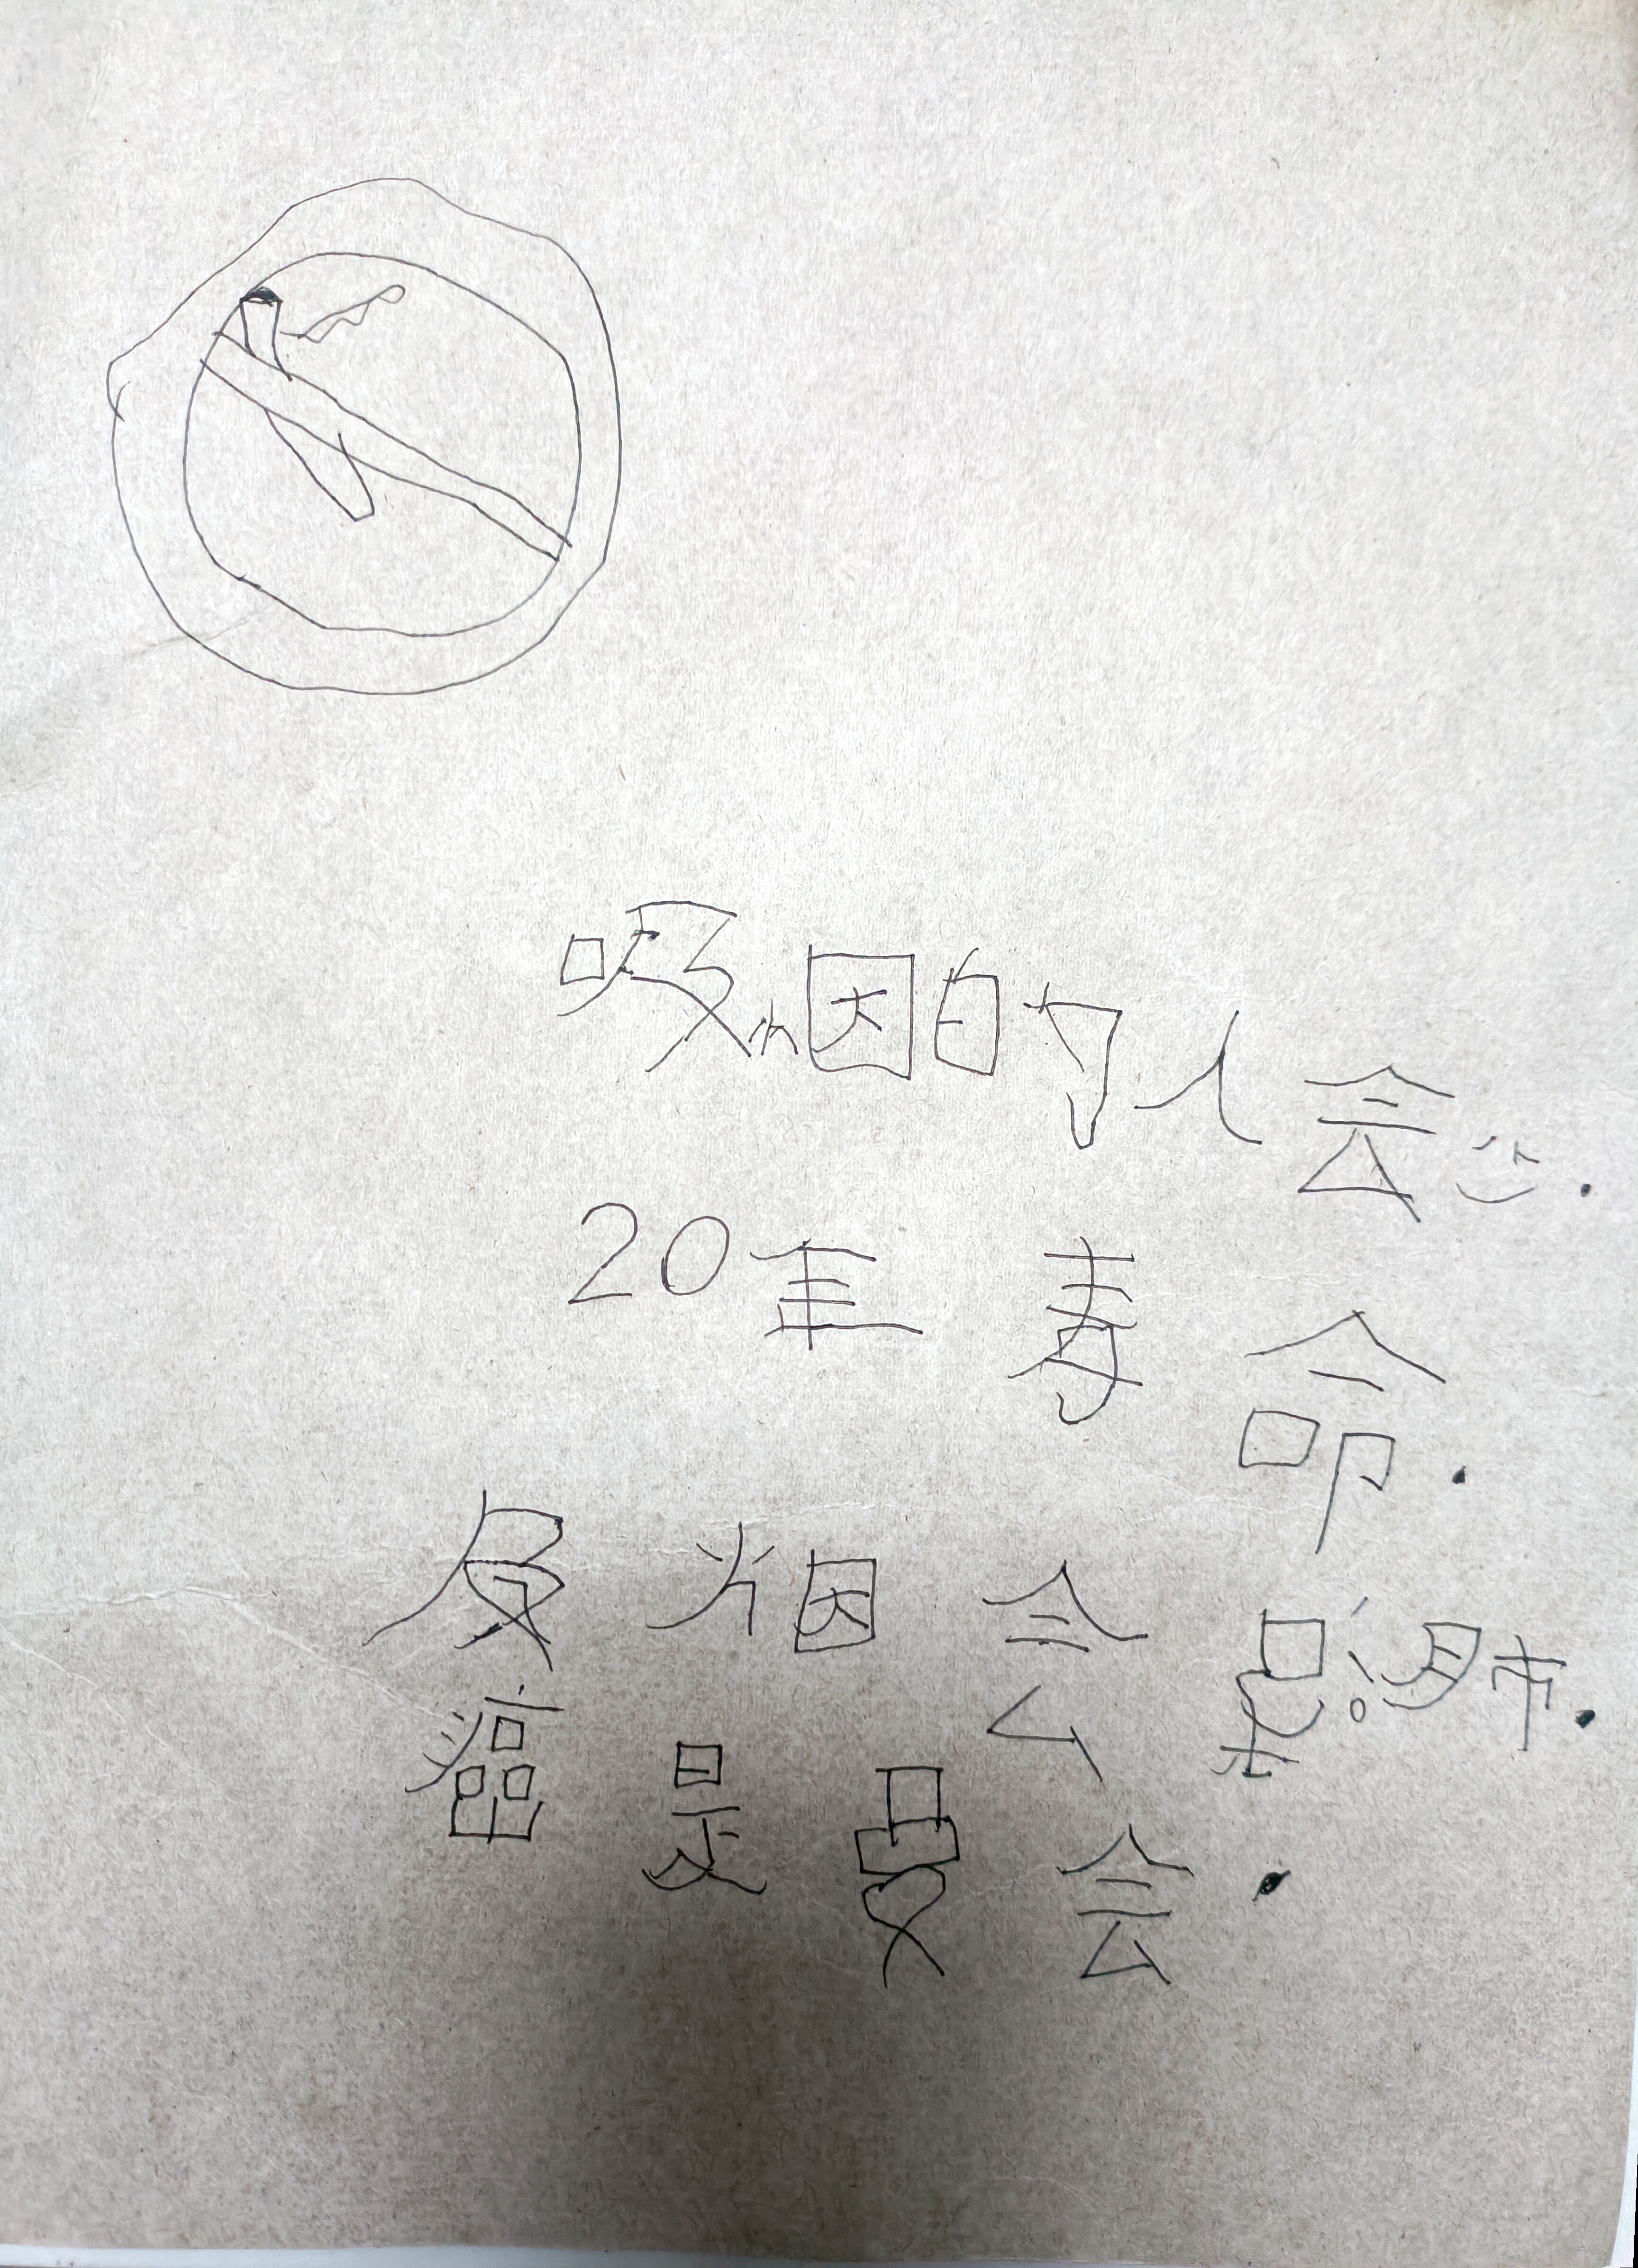 吸烟的人会少.
20年 寿 命.
反 烟 会 患得肺.
癌 是 曼 会.